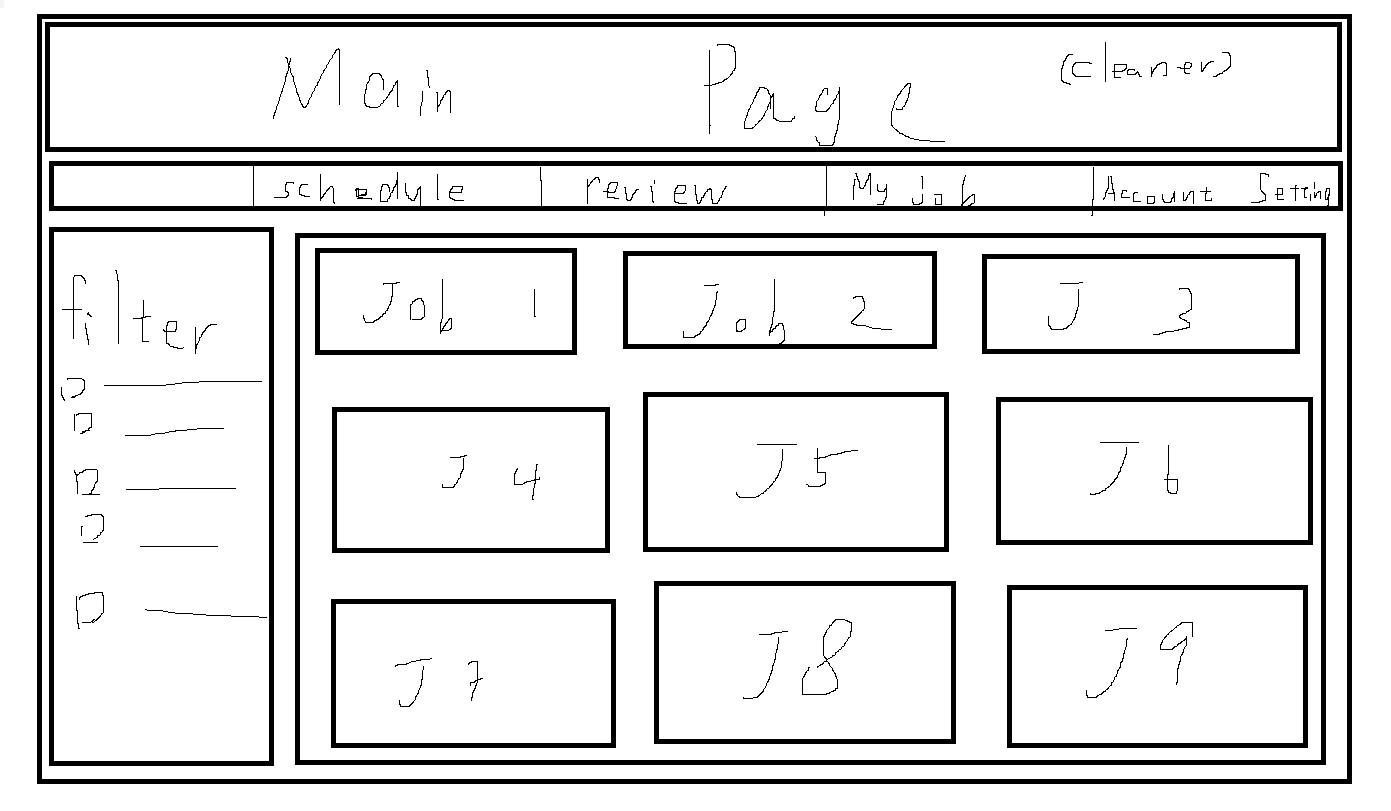 Main Page (cleaner)
schedule review My job Account Setting
filter
Job 1 Job 2 J 3
J 4 J5 J6
J 7 J8 J9